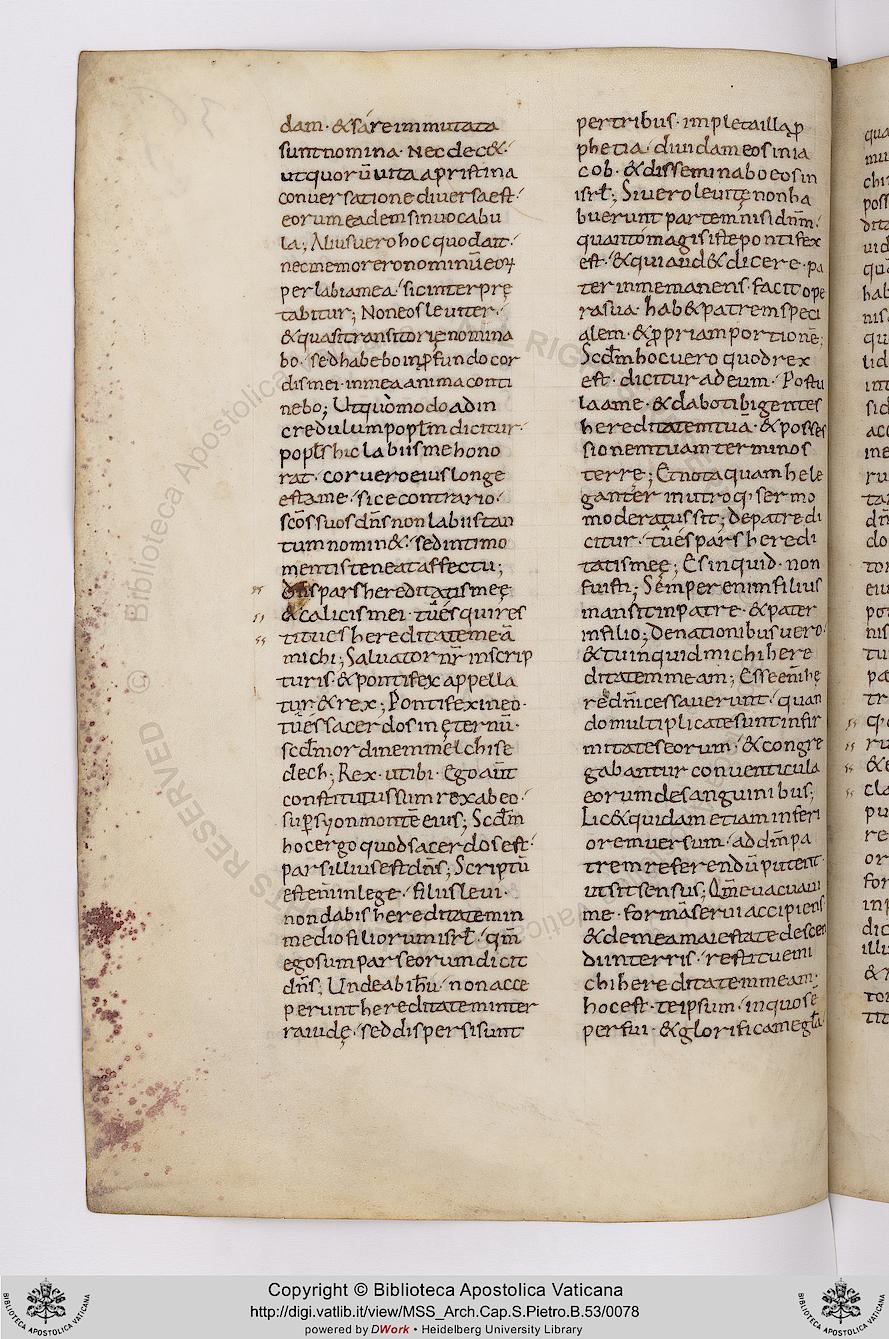 dam· & sáre immutata
sunt nomina· Nec dec&·
ut quorū uita a pristina
conuersatione diuersa est·
eorum eadem sin uocabu
la; Alius uero hoc quod ait·
nec memor ero nominū eoꝝ
per labia mea· sic interprę
tabitur; Non eos leuiter·
& quasi transitorie nomina
bo· sed habebo in ꝓfundo cor
dis mei· in mea anima conti
nebo; Ut quomodo ad in
credulum popł̄m dicitur·
popł̄s hic labiis me hono
rat· cor uero eius longe
est a me· sic e contrario·
sc̄os suos dn̄s non labiis tan
tum nomin&· sed intimo
mentis teneat affectu;
dn̄s pars hereditatis meę
& calicis mei· tu es qui res
titues hereditatē meā
michi; Saluator nr̄ in scrip
turis· & pontifex appella
tur & rex; Pontifex in eo·
tu es sacerdos in ęternū·
scd̄m ordinem melchise
dech; Rex· ut ibi· Ego aūt
constitutus sum rex ab eo·
suꝑ syon montē eius; Scd̄m
hoc ergo quod sacerdos est·
pars illius est dn̄s; Scriptū
est eni in lege· filiis leui·
non dabis hereditatem in
medio filiorum isrł· qm̄
ego sum pars eorum dicit
dn̄s; Unde abihū· non acce
perunt hereditatem inter
ra iudę· sed dispersi sunt
per tribus· impleta illa ꝓ
phetia· diuidam eos in ia
cob· & disseminabo eos in
isrł; Si uero leuitę non ha
buerunt partem nisi dn̄m·
quanto magis iste pontifex
est· & qui aud& dicere· pa
ter in me manens· facit ope
ra sua· hab& patrem speci
alem· & ꝓpriam portionē;
Scd̄m hoc uero quod rex
est· dicitur ad eum· Postu
la a me· & dabo tibi gentes
hereditatem tuā· & posses
sionem tuam terminos
terrę; Et nota quam hele
ganter in utroq· sermo
moderatus sit; De patre di
citur· tu es pars heredi
tatis meę; Es inquid· non
fuisti; Semper enim filius
mansit in patre· & pater
in filio; De nationibus uero·
& tu inquid michi here
ditatem meam; Esse eni he
red̄nı cessauerunt· quan
do multiplicatę sunt infir
mitates eorum· & congre
gabantur conuenticula
eorum de sanguinibus;
Lic& quidam etiam inferi
orem uersum· ad dm̄ pa
trem referendū putent·
ut sit sensus; Qm̄ euacuaui
me· formā serui accipiens
& de mea maiestate descen
di in terris· restitue mi
chi hereditatem meam·
hoc est· te ipsum· in quo sē
per fui· & glorifica me gła